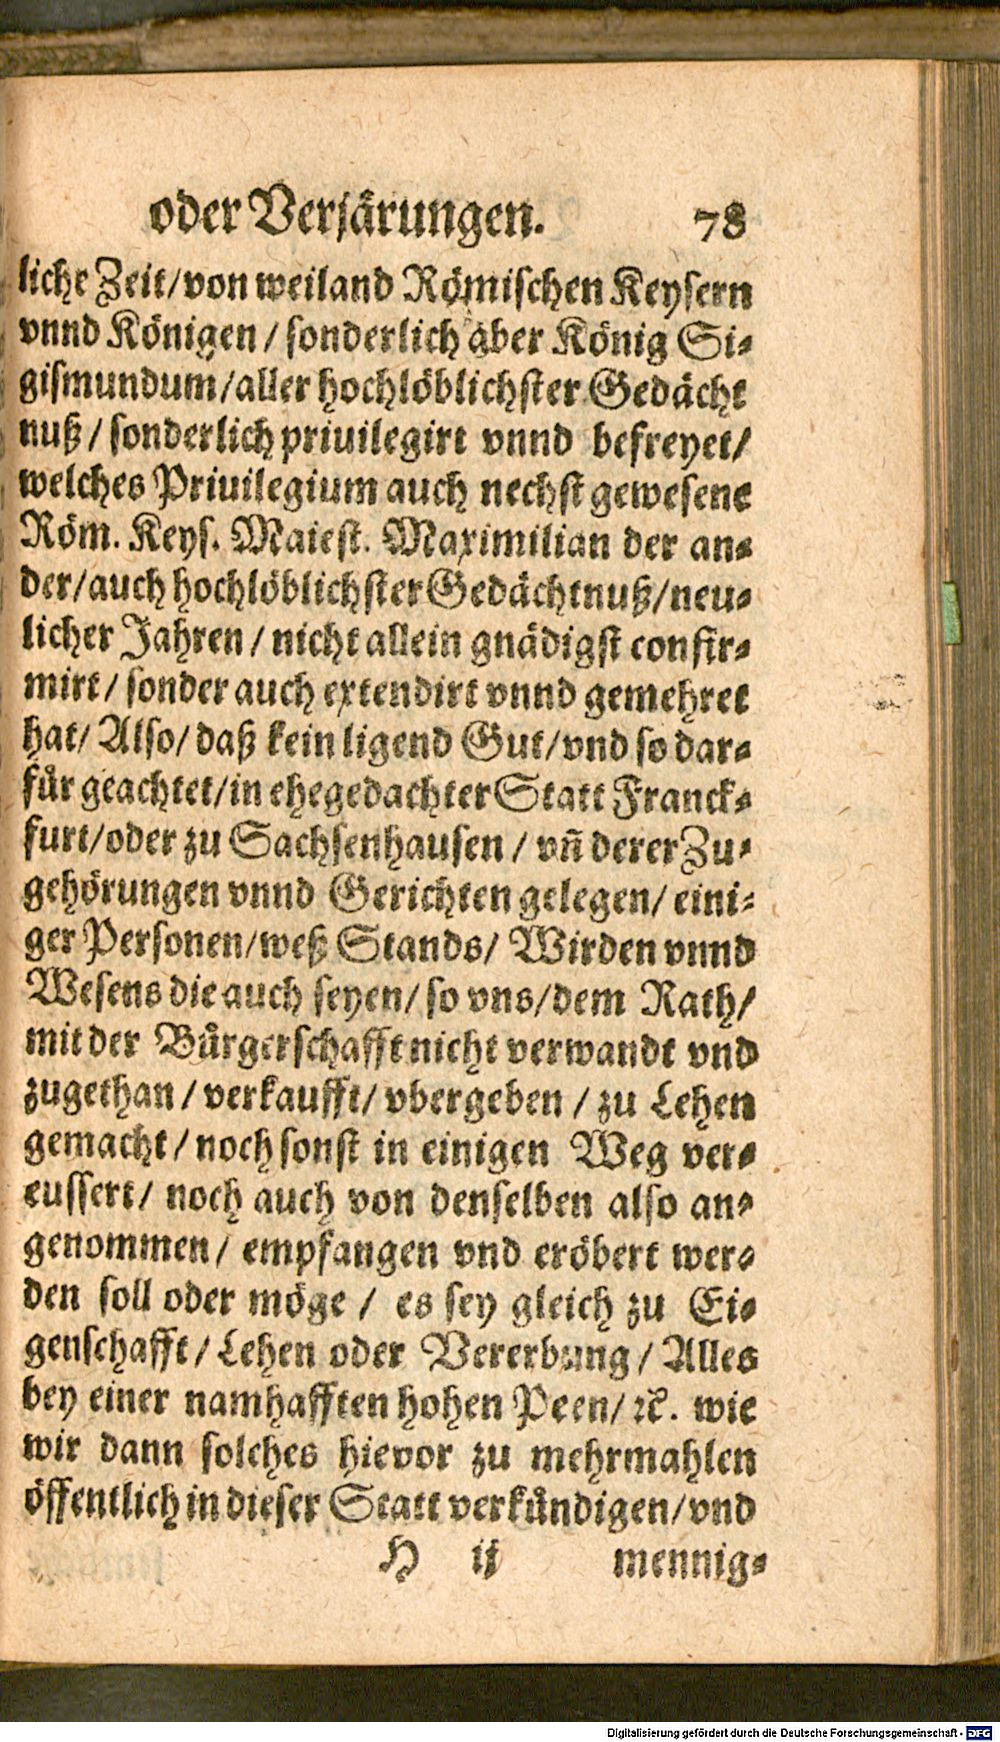 oder Verjärungen. 78
liche Zeit/von weiland Römischen Keysern
vnnd Königen / sonderlich aber König Si-
gismundum/aller hochlöblichster Gedächt
nuß / sonderlich priuilegirt vnnd befreyet/
welches Priuilegium auch nechst gewesene
Röm. Keys. Maiest. Maximilian der an-
der/auch hochlöblichster Gedächtnuß/neu-
licher Jahren / nicht allein gnädigst confir-
mirt / sonder auch extendirt vnnd gemehret
hat/ Also/ daß kein ligend Gut/vnd so dar-
fůr geachtet/in ehegedachter Statt Franck-
furt/oder zu Sachsenhausen / vñ derer Zu-
gehörungen vnnd Gerichten gelegen/ eini-
ger Personen/weß Stands/ Wirden vnnd
Wesens die auch seyen/ so vns/dem Rath/
mit der Bůrgerschafft nicht verwandt vnd
zugethan / verkaufft/ vbergeben / zu Lehen
gemacht / noch sonst in einigen Weg ver-
eussert/ noch auch von denselben also an-
genommen/ empfangen vnd eröbert wer-
den soll oder möge / es sey gleich zu Ei-
genschafft / Lehen oder Vererbung / Alles
bey einer namhafften hohen Peen/ ꝛc. wie
wir dann solches hievor zu mehrmahlen
öffentlich in dieser Statt verkůndigen/vnd
H ij mennig-
Digitalisierung gefördert durch die Deutsche Forschungsgemeinschaft - DFG